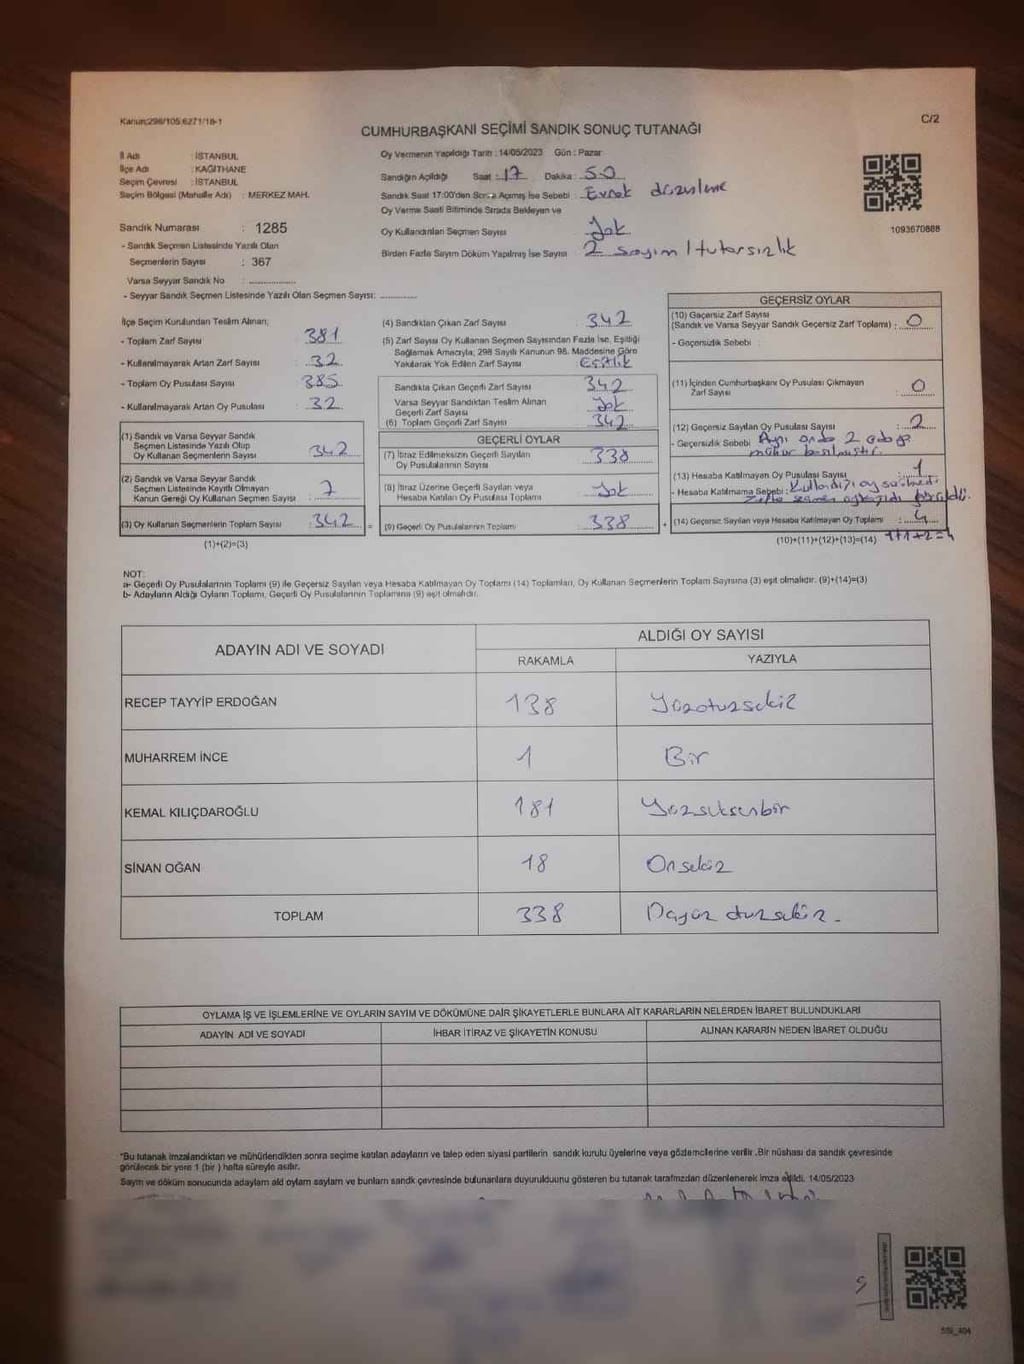 Kanun:298/105.6271/18-1
C/2
CUMHURBAŞKANI SEÇİMİ SANDIK SONUÇ TUTANAĞI
İl Adı : İSTANBUL
İlçe Adı : KAĞITHANE
Seçim Çevresi : İSTANBUL
Seçim Bölgesi (Mahalle Adı) : MERKEZ MAH.
Sandık Numarası : 1285
- Sandık Seçmen Listesinde Yazılı Olan
Seçmenlerin Sayısı : 367
Varsa Seyyar Sandık No :
- Seyyar Sandık Seçmen Listesinde Yazılı Olan Seçmen Sayısı:
Oy Vermenin Yapıldığı Tarih : 14/05/2023 Gün : Pazar
Sandığın Açıldığı Saat : 17 Dakika : 50
Sandık Saat 17:00'den Sonra Açılmış İse Sebebi : Evrak düzenleme
Oy Verme Saati Bitiminde Sırada Bekleyen ve
Oy Kullandırılan Seçmen Sayısı : Yok
Birden Fazla Sayım Döküm Yapılmış İse Sayısı : 2 sayım / tutarsızlık
1093670888
İlçe Seçim Kurulundan Teslim Alınan;
- Toplam Zarf Sayısı : 381
- Kullanılmayarak Artan Zarf Sayısı : 32
- Toplam Oy Pusulası Sayısı : 385
- Kullanılmayarak Artan Oy Pusulası : 32
(1) Sandık ve Varsa Seyyar Sandık
Seçmen Listesinde Yazılı Olup
Oy Kullanan Seçmenlerin Sayısı : 342
(2) Sandık ve Varsa Seyyar Sandık
Seçmen Listesinde Kayıtlı Olmayan
Kanun Gereği Oy Kullanan Seçmen Sayısı : 7
(3) Oy Kullanan Seçmenlerin Toplam Sayısı : 342 =
(1)+(2)=(3)
(4) Sandıktan Çıkan Zarf Sayısı : 342
(5) Zarf Sayısı Oy Kullanan Seçmen Sayısından Fazla İse, Eşitliği
Sağlamak Amacıyla; 298 Sayılı Kanunun 98. Maddesine Göre
Yakılarak Yok Edilen Zarf Sayısı : Eşitlik
Sandıkta Çıkan Geçerli Zarf Sayısı : 342
Varsa Seyyar Sandıktan Teslim Alınan
Geçerli Zarf Sayısı : Yok
(6) Toplam Geçerli Zarf Sayısı : 342
GEÇERLİ OYLAR
(7) İtiraz Edilmeksizin Geçerli Sayılan
Oy Pusulalarının Sayısı : 338
(8) İtiraz Üzerine Geçerli Sayılan veya
Hesaba Katılan Oy Pusulası Toplamı : Yok
(9) Geçerli Oy Pusulalarının Toplamı : 338 +
GEÇERSİZ OYLAR
(10) Geçersiz Zarf Sayısı
(Sandık ve Varsa Seyyar Sandık Geçersiz Zarf Toplamı) : 0
- Geçersizlik Sebebi :
(11) İçinden Cumhurbaşkanı Oy Pusulası Çıkmayan
Zarf Sayısı : 0
(12) Geçersiz Sayılan Oy Pusulası Sayısı : 2
- Geçersizlik Sebebi : Aynı anda 2 adaya
mühür basılmıştır.
(13) Hesaba Katılmayan Oy Pusulası Sayısı : 1
- Hesaba Katılmama Sebebi : Kullandığı oy
seçmen
(14) Geçersiz Sayılan veya Hesaba Katılmayan Oy Toplamı : 4
(10)+(11)+(12)+(13)=(14) 1+1+2=4
NOT:
a- Geçerli Oy Pusulalarının Toplamı (9) ile Geçersiz Sayılan veya Hesaba Katılmayan Oy Toplamı (14) Toplamları, Oy Kullanan Seçmenlerin Toplam Sayısına (3) eşit olmalıdır. (9)+(14)=(3)
b- Adayların Aldığı Oyların Toplamı, Geçerli Oy Pusulalarının Toplamına (9) eşit olmalıdır.
ADAYIN ADI VE SOYADI
ALDIĞI OY SAYISI
RAKAMLA YAZIYLA
RECEP TAYYİP ERDOĞAN 138 Yüzotuzsekiz
MUHARREM İNCE 1 Bir
KEMAL KILIÇDAROĞLU 181 Yüzseksenbir
SİNAN OĞAN 18 Onsekiz
TOPLAM 338
OYLAMA İŞ VE İŞLEMLERİNE VE OYLARIN SAYIM VE DÖKÜMÜNE DAİR ŞİKAYETLERLE BUNLARA AİT KARARLARIN NELERDEN İBARET BULUNDUKLARI
ADAYIN ADI VE SOYADI İHBAR İTİRAZ VE ŞİKAYETİN KONUSU ALINAN KARARIN NEDEN İBARET OLDUĞU
*Bu tutanak imzalandıktan ve mühürlendikten sonra seçime katılan adayların ve talep eden siyasi partilerin sandık kurulu üyelerine veya gözlemcilerine verilir.Bir nüshası da sandık çevresinde
görülecek bir yere 1 (bir ) hafta süreyle asılır.
Sayım ve döküm sonucunda adayların aldı oyların sayıların ve bunların sandık çevresinde bulunanlara duyurulduğunu gösteren bu tutanak tarafımızdan düzenlenerek imza edildi. 14/05/2023